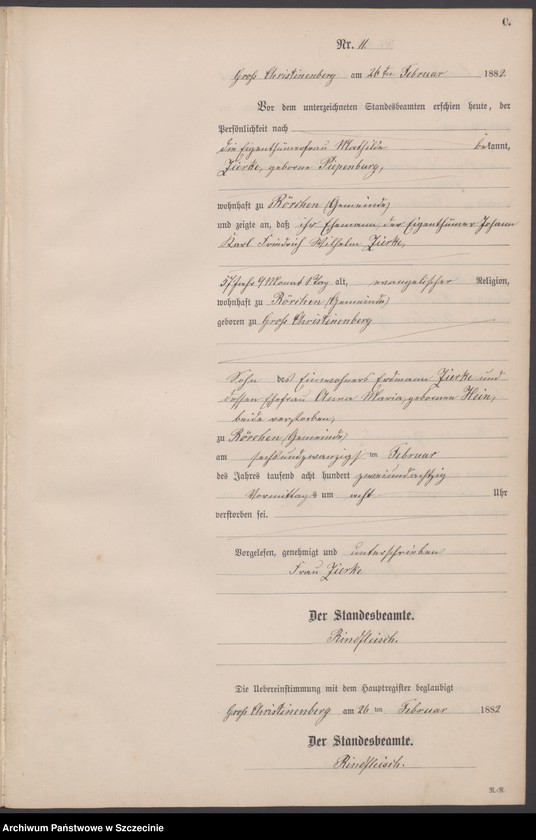 C.
Nr. 11
Groß Christinenberg am 26ten Februar 1882
Vor dem unterzeichneten Standesbeamten erschien heute, der
Persönlichkeit nach
die Eigenthümerfrau Mathilde bekannt,
Zierke, geborne Piepenburg,
wohnhaft zu Rörchen (Gemeinde)
und zeigte an, daß ihr Ehemann, der Eigenthümer Johann
Karl Friedrich Wilhelm Zierke,
57 Jahr 4 Monat 1 Tag alt, evangelischer Religion,
wohnhaft zu Rörchen (Gemeinde)
geboren zu Groß Christinenberg
Sohn des Einwohners Erdmann Zierke und
dessen Ehefrau Anna Maria, gebornen Hein,
beide verstorben,
zu Rörchen (Gemeinde)
am sechsundzwanzigsten Februar
des Jahres tausend acht hundert zweiundachtzig
Vormittags um acht Uhr
verstorben sei.
Vorgelesen, genehmigt und unterschrieben
Frau Zierke
Der Standesbeamte.
Rindfleisch.
Die Uebereinstimmung mit dem Hauptregister beglaubigt
Groß Christinenberg am 26ten Februar 1882
Der Standesbeamte.
Rindfleisch.
R.-R.
Archiwum Państwowe w Szczecinie